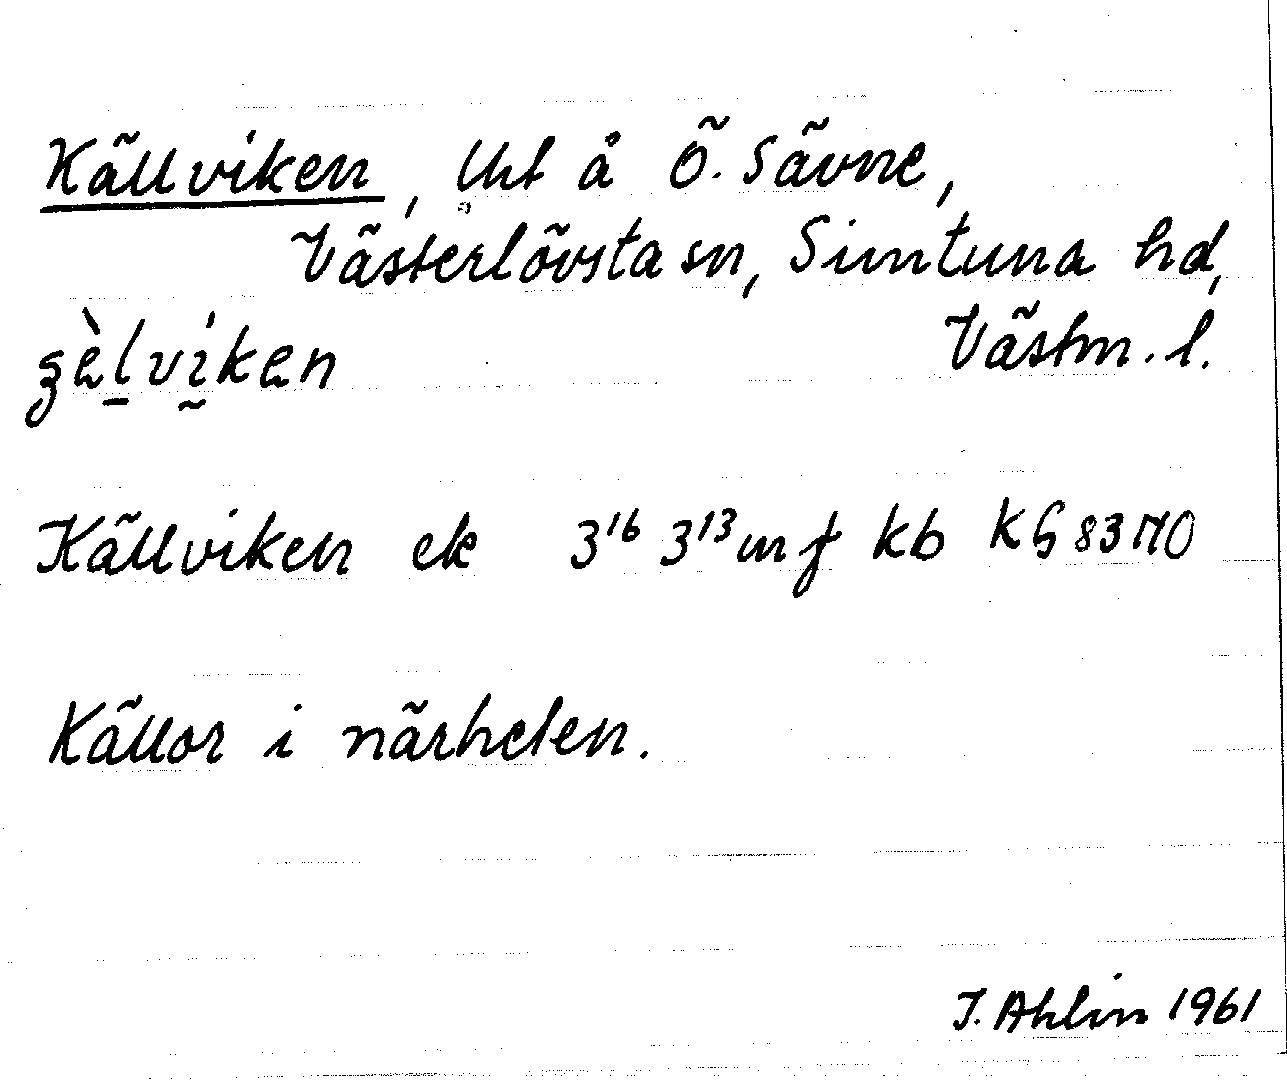 Källviken, Uht å Ö. Sävne,
Västerlövsta sn, Simtuna hd,
Västm. l.
Källviken ek 3¹⁶ 3¹³ mf kb KG 8370
Källor i närheten.
J. Ahlin 1961